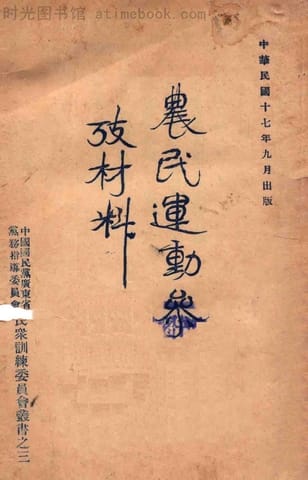 时光图书馆 - www.atimebook.com
中華民國十七年九月出版
農民運動參
攷材料
中國國民黨廣東省
黨務指導委員會
民衆訓練委員會叢書之三